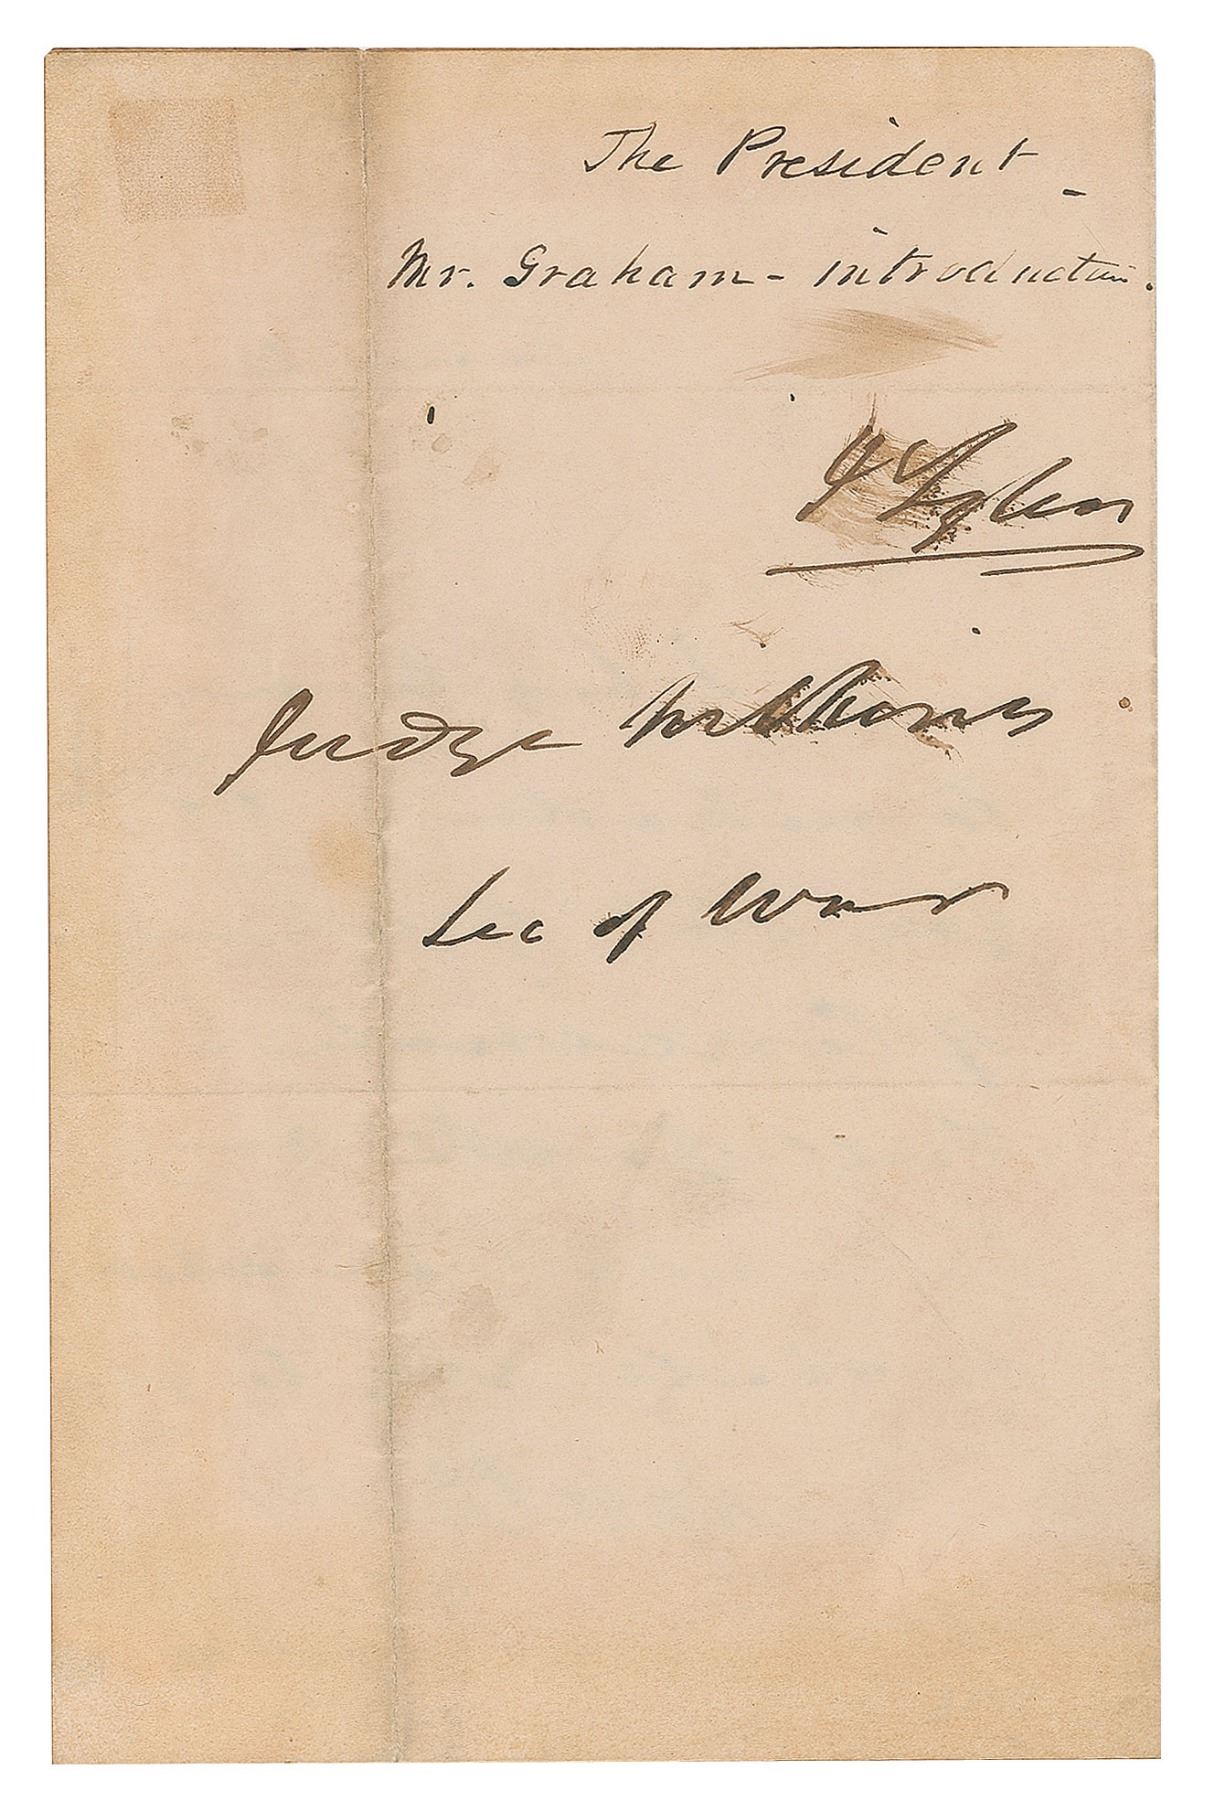 The President -
Mr. Graham - introduction.
J Tyler
Judge Wilkins
Sec of War